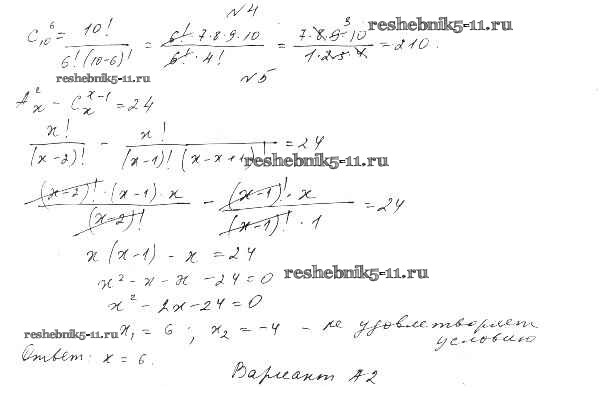 №4
C₁₀⁶ = 10! / 6!(10-6)! = 6!·7·8·9·10 / 6!·4! = 7·8·9·10 / 1·2·3·4 = 210. reshebnik5-11.ru
reshebnik5-11.ru
№5
Aₓ² - Cₓˣ⁻¹ = 24
x! / (x-2)! - x! / (x-1)!(x-x+1)! = 24 reshebnik5-11.ru
(x-2)!·(x-1)·x / (x-2)! - (x-1)!·x / (x-1)!·1 = 24
x(x-1) - x = 24
x² - x - x - 24 = 0 reshebnik5-11.ru
x² - 2x - 24 = 0
reshebnik5-11.ru x₁ = 6; x₂ = -4 - не удовлетворяет
условию
Ответ: x = 6.
Вариант А2